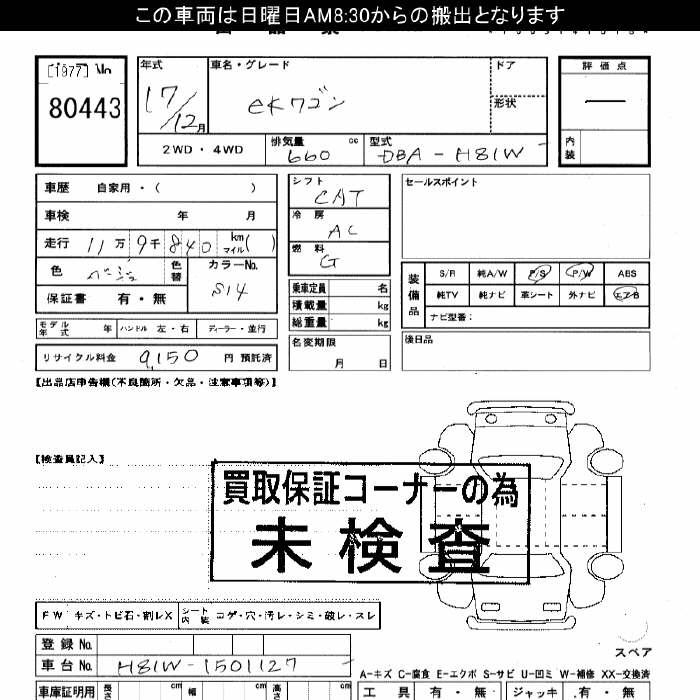 この車両は日曜日AM8:30からの搬出となります
[1977] No
80443
年式
17/12月
車名・グレード
eKワゴン
ドア
形状
評価点
内装
2WD・4WD
排気量 660 cc
型式 DBA-H81W
車歴 自家用・( )
車検 年 月
走行 11万9千840 km マイル( )
色 ベージュ
色替
カラーNo. S14
保証書 有・無
モデル年式 年
ハンドル 左・右
ディーラー・並行
リサイクル料金 9,150 円 預託済
シフト CAT
冷房 AC
燃料 G
乗車定員 名
積載量 kg
総重量 kg
名変期限
月 日
セールスポイント
装備品
S/R 純A/W P/S P/W ABS
純TV 純ナビ 革シート 外ナビ エアB
ナビ型番:
後日品
【出品店申告欄(不良箇所・欠品・注意事項等)】
【検査員記入】
買取保証コーナーの為
未検査
FW キズ・トビ石・割レX
シート内装 コゲ・穴・汚レ・シミ・破レ・スレ
登録No.
車台No. H81W-1501127
スペア
A-キズ C-腐食 E-エクボ S-サビ U-凹ミ W-補修 XX-交換済
車庫証明用 長さ cm 幅 cm 高さ cm
工具 有・無 ジャッキ 有・無